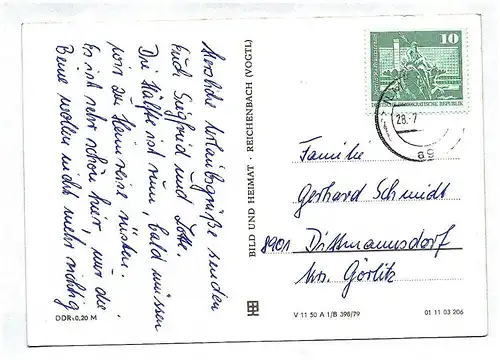 Herzliche Urlaubsgrüße senden
Euch Siegfried und Lotte.
Die Hälfte ist rum, bald müssen
wir zur Heimreise rüsten.
Es ist sehr schön hier, nur die
Beine wollen nicht mehr richtig
DDR 0,20 M
BILD UND HEIMAT · REICHENBACH (VOGTL)
10
DEUTSCHE DEMOKRATISCHE REPUBLIK
28.-7
Familie
Gerhard Schmidt
8901 Dittmannsdorf
Krs. Görlitz
V 11 50 A 1/B 398/79
01 11 03 206